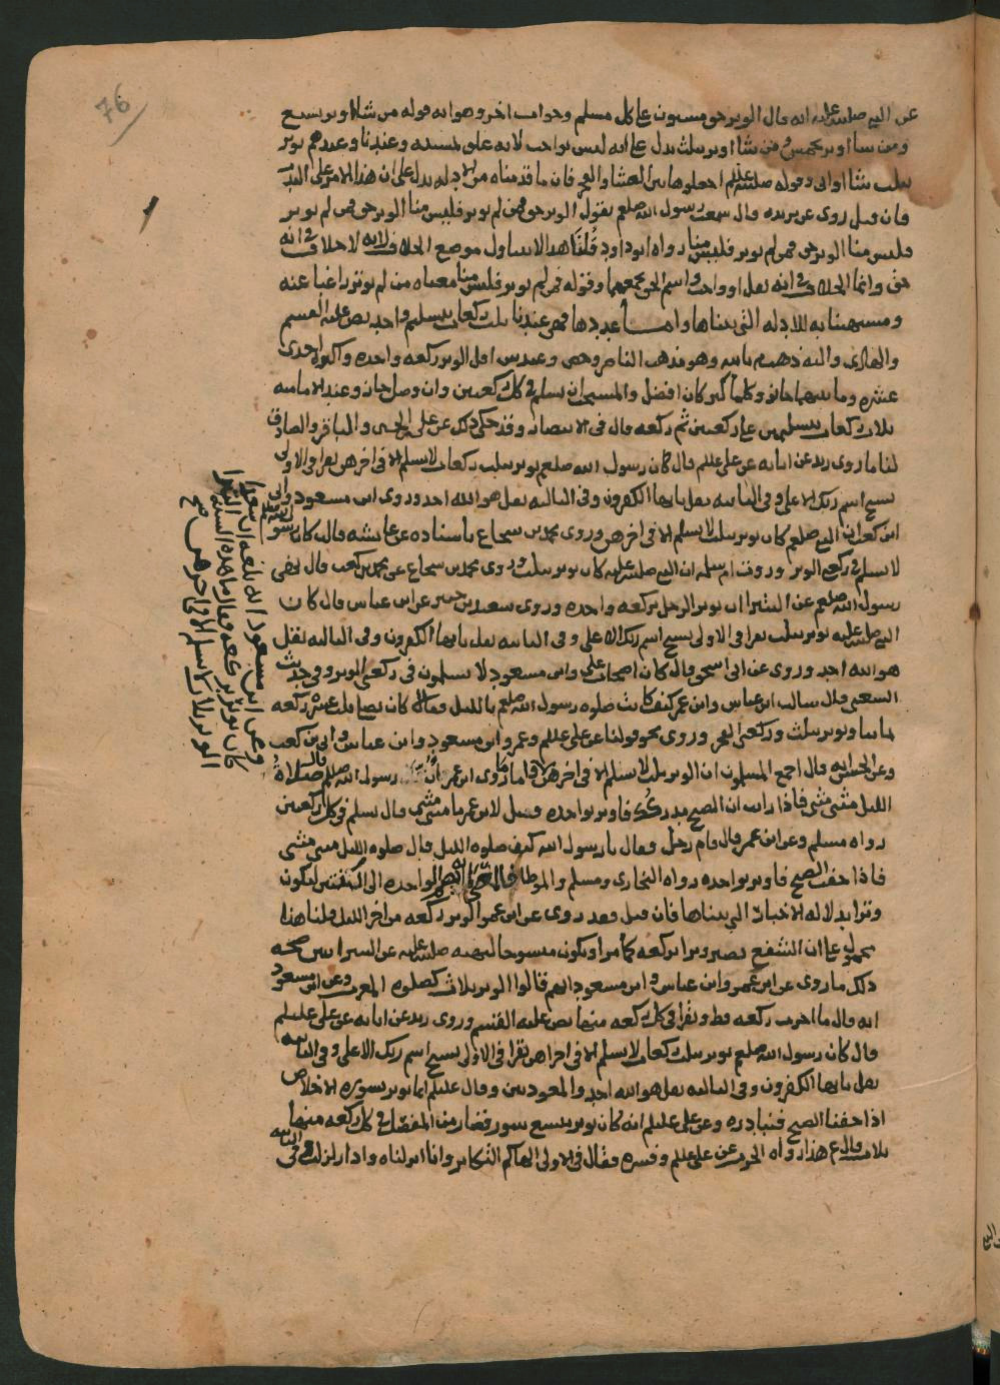 76
عن النبي صلى الله عليه انه قال الوتر حق مسنون على كل مسلم وجواب اخر وهو انه قوله من شاء اوتر بسبع
ومن شا اوتر بخمس ومن شا اوتر بثلث يدل على انه ليس بواجب لانه علق بمشيئته وعندنا وعندهم يوتر
بثلث شا او ابى وقوله صلى الله عليه وسلم اجعلوها بين العشا والفجر فان ما قدمناه من الادلة يدل على ان هذا الامر على الندب
فان قيل روي عن بريده قال سمعت رسول الله صلعم يقول الوتر حق فمن لم يوتر فليس منا الوتر حق فمن لم يوتر
فليس منا الوتر حق فمن لم يوتر فليس منا رواه ابو داود قلنا هذا لا يتناول موضع الخلاف لانه لا خلاف في انه
حق وانما الخلاف في انه نفل او واجب واسم الحق يجمعهما وقوله فمن لم يوتر فليس منا معناه من لم يوتر راغبا عنه
ومستهينا به للادلة التي بيناها واما عددها فهي عندنا ثلث ركعات بتسليم واحد نص عليه القسم
والهادي واليه ذهب م بالله وهو مذهب الناصر وحص وعند ش اقل الوتر ركعه واحده واكثره احدى
عشره وما بينهما جائز وكلما كثر كان افضل والمستحب ان يسلم في كل ركعتين وان وصل جاز وعند الاماميه
ثلاث ركعات بتسليمتين على ركعتين ثم ركعه قال في الانتصار وقد حكي ذلك عن علي بن الحسين والباقر والصادق
لنا ما روى زيد عن ابائه عن علي عليلم قال كان رسول الله صلعم يوتر بثلث ركعات لا يسلم الا في اخرهن يقرا في الاولى
سبح اسم ربك الاعلى وفي الثانيه بقل يا ايها الكفرون وفي الثالثه بقل هو الله احد وروى ابن مسعود وابي
ابن كعب ان النبي صلعم كان يوتر بثلث لا يسلم الا في اخرهن وروى محمد بن شجاع باسناده عن عائشه قالت كان رسول الله
لا يسلم في ركعتي الوتر وروت ام سلمه ان النبي صلى الله عليه كان يوتر بثلث وروى محمد بن شجاع عن محمد بن كعب قال نهى
رسول الله صلعم عن البتيرا ان يوتر الرجل بركعه واحده وروى سعيد بن جبير عن ابن عباس قال كان
النبي صلى الله عليه يوتر بثلث يقرا في الاولى بسبح اسم ربك الاعلى وفي الثانيه بقل يا ايها الكفرون وفي الثالثه بقل
هو الله احد وروي عن ابي اسحق قال كان اصحاب علي وابن مسعود لا يسلمون في ركعتي الوتر وفي حديث
الشعبي قال سالت ابن عباس وابن عمر كيف كانت صلوة رسول الله صلعم بالليل فقالا كان يصلي ثلث عشره ركعه
ثمانيا ويوتر بثلث وركعتي الفجر وروي نحو قولنا عن علي عليلم وعمر وابن مسعود وابن عباس وابي بن كعب
وعن الحسن انه قال اجمع المسلمون ان الوتر ثلث لا يسلم الا في اخرهن فاما ما روى ابن عمر ان رسول الله صلعم قال صلاة
الليل مثنى مثنى فاذا رايت ان الصبح يدركك فاوتر بواحده وقيل لابن عمر ما مثنى مثنى قال يسلم في كل ركعتين
رواه مسلم وعن ابن عمر قال قام رجل فقال يا رسول الله كيف صلوه الليل قال صلوه الليل مثنى مثنى
فاذا خفت الصبح فاوتر بواحده رواه البخاري ومسلم والموطا الواحده الى الثنتين ليكون
وترا بدلالة الاخبار التي بيناها فان قيل فقد روي عن ابن عمر الوتر ركعه من اخر الليل قلنا هذا
محمول على ان الشفع تصير وترا بركعه كما مر او يكون منسوخا لنهيه صلى الله عليه عن البتيرا
ذلك ما روي عن ابن عمر وابن عباس وابن مسعود انهم قالوا الوتر ثلاث كصلوه المغرب وعن ابن مسعود
انه قال ما اجزت ركعه قط ويقرا في كل ركعه منها نص عليه القسم وروى زيد عن ابائه عن علي عليلم
قال كان رسول الله صلعم يوتر بثلث ركعات لا يسلم الا في اخراهن يقرا في الاولى بسبح اسم ربك الاعلى وفي الثانيه
بقل يا ايها الكفرون وفي الثالثه بقل هو الله احد والمعوذتين وقال عليلم انما يوتر بسوره الاخلاص
اذا خفنا الصبح فنبادره وعن علي عليلم انه كان يوتر بتسع سور قصار من المفصل في كل ركعه منها
ثلاث هذا رواه عن علي عليلم وفسره فقال في الاولى الهاكم التكاثر وانا انزلناه واذا زلزلت وفي الثانيه
وعن ابن مسعود انه بلغه ان سعدا
كان يوتر بركعه فقال ما هذه البتيرا
الوتر ثلاث لا يسلم الا في اخرهن صح